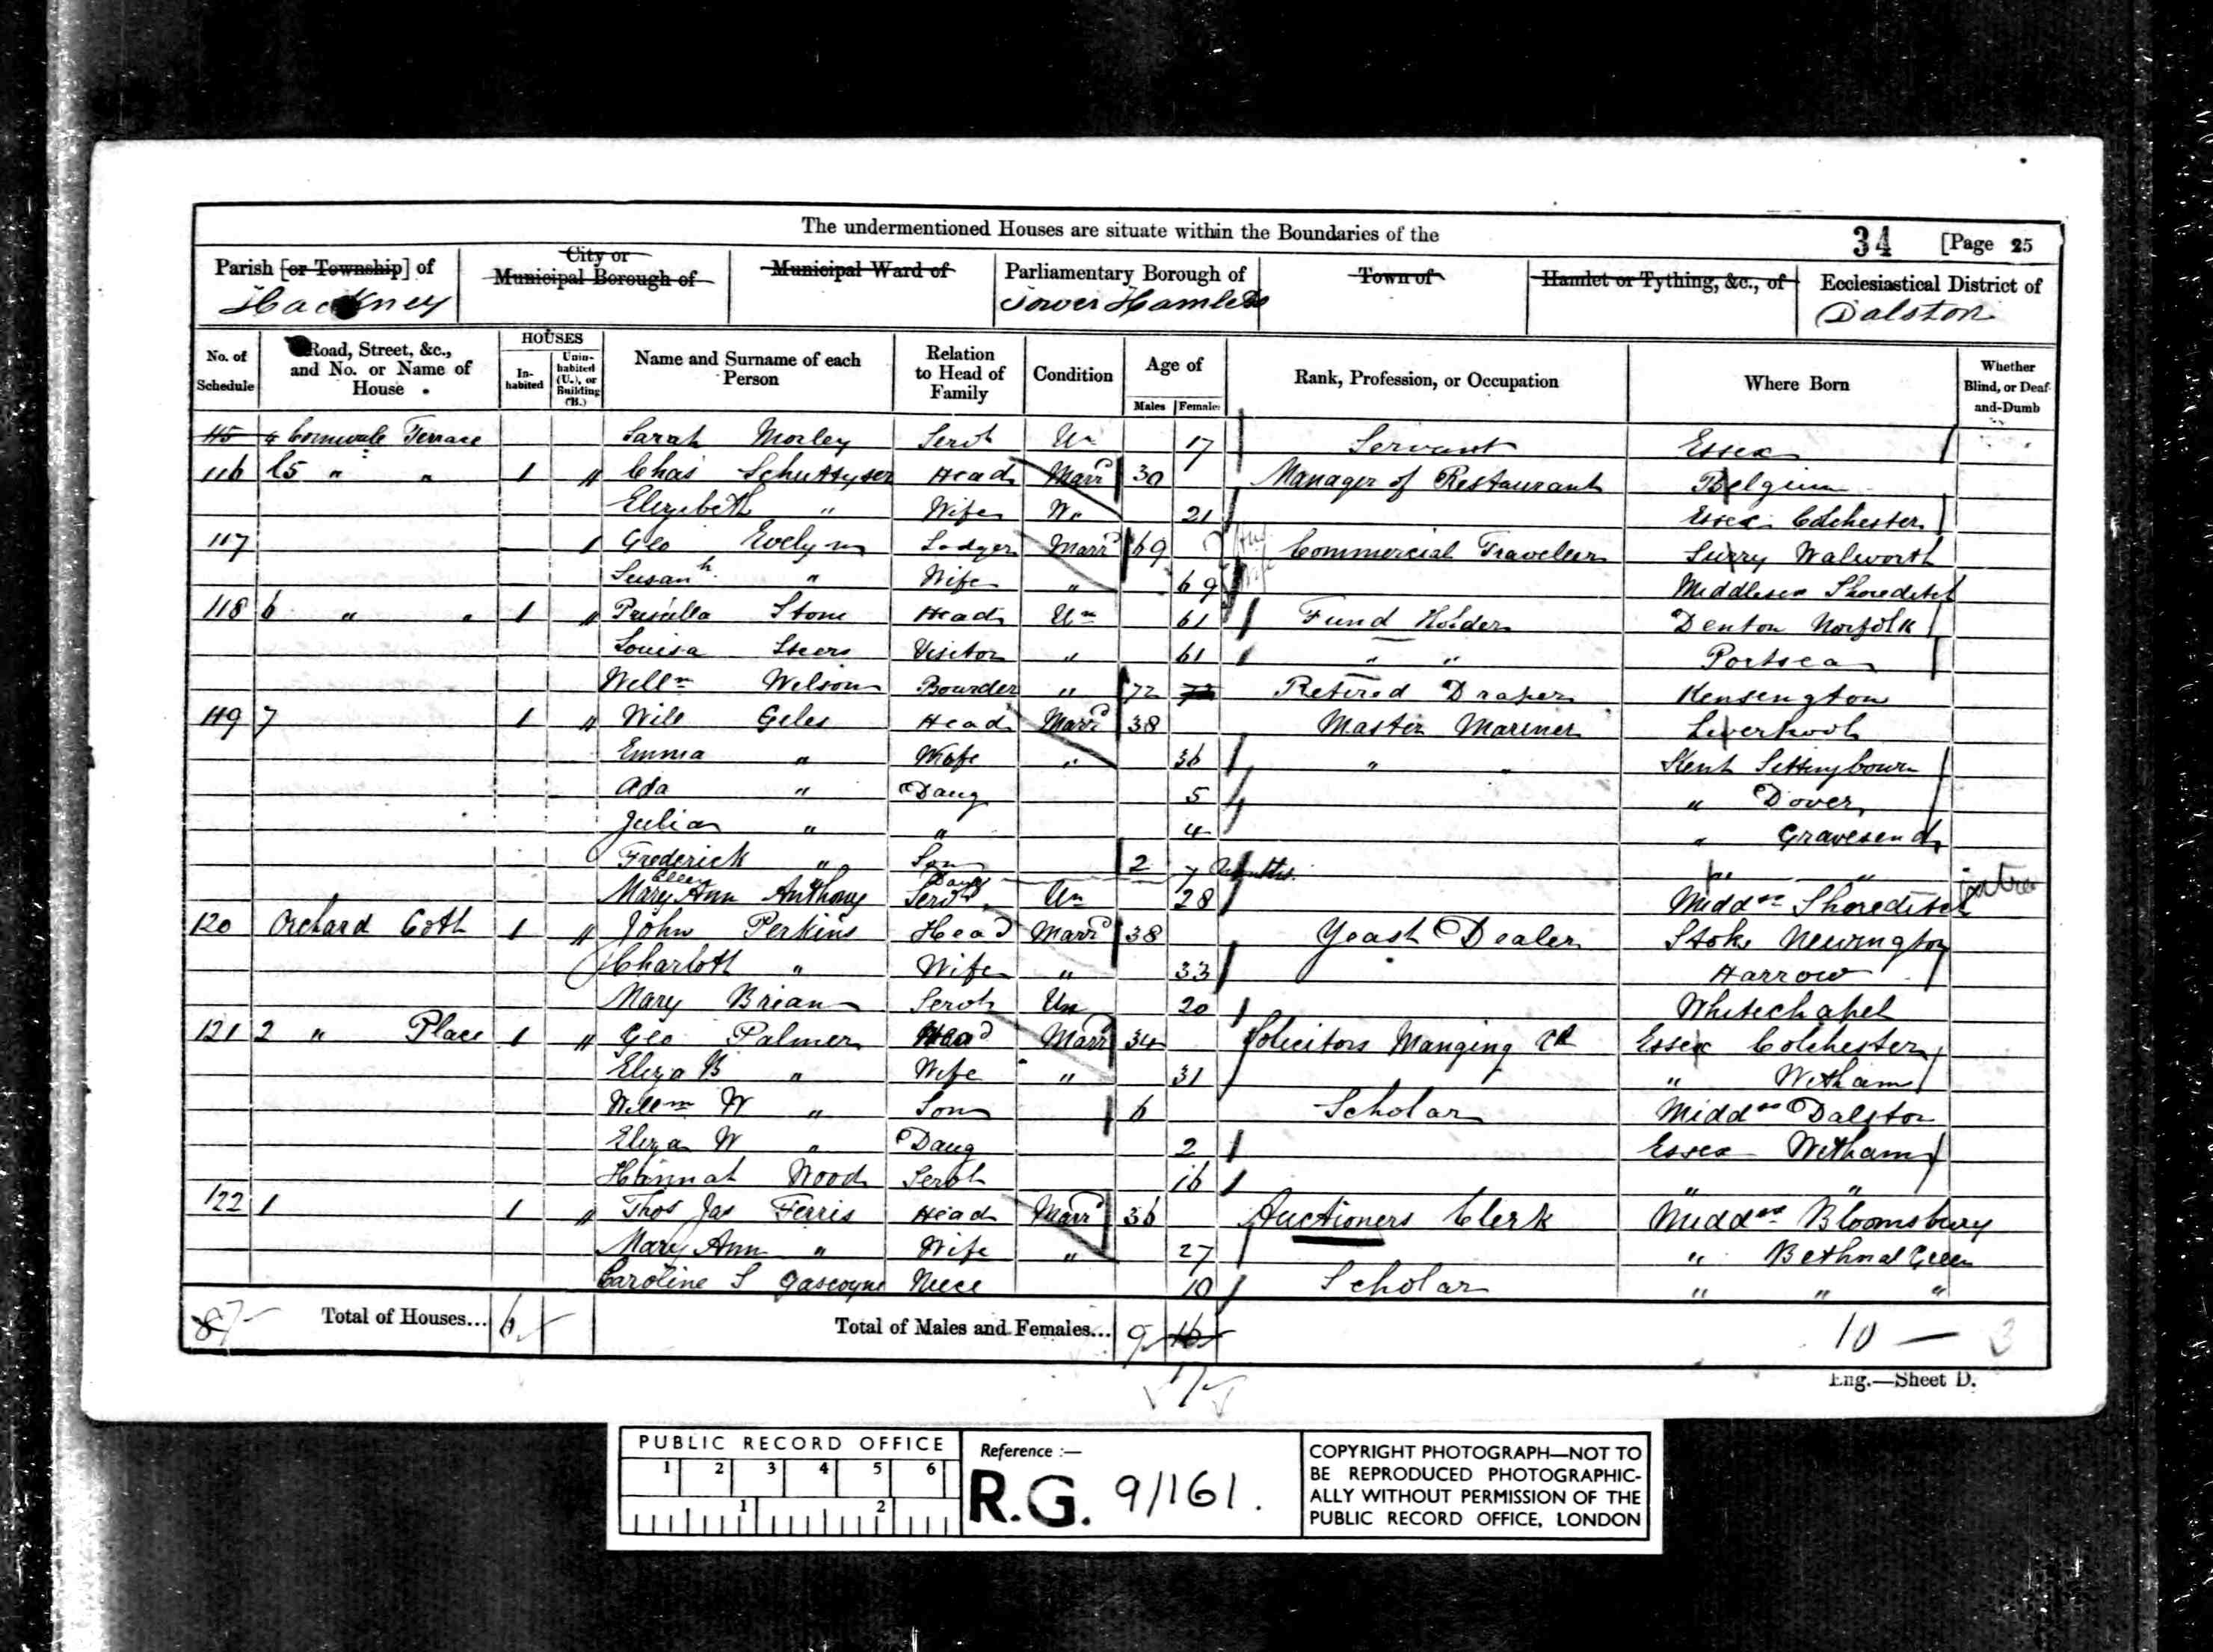 The undermentioned Houses are situate within the Boundaries of the 34 [Page 25
Parish [or Township] of Hackney
City or Municipal Borough of
Municipal Ward of
Parliamentary Borough of Tower Hamlets
Town of
Hamlet or Tything, &c., of
Ecclesiastical District of Dalston
No. of Schedule
Road, Street, &c., and No. or Name of House
HOUSES
In-habited
Unin-habited (U.), or Building (B.)
Name and Surname of each Person
Relation to Head of Family
Condition
Age of
Males Females
Rank, Profession, or Occupation
Where Born
Whether Blind, or Deaf-and-Dumb
115 4 Cornwale Terrace Sarah Morley Servt Un 17 Servant Essex
116 5 " " 1 Chas Head Marrd 30 Manager of Restaurant Belgium
Elizabeth " Wife 21 Essex Colchester
117 Geo Evelyn Lodger Marrd 69 Commercial Traveler Surry Walworth
Susanh " Wife " 69 Middlesex Shoreditch
118 6 " " 1 Priscilla Stone Head Un 61 Fund Holder Denton Norfolk
Louisa Steers Visitor " 61 " " Portsea
Willm Wilson Bourder " 72 Retired Draper Kensington
119 7 1 Will Giles Head Marrd 38 Master Mariner Liverpool
Emma " Wife " 36 " " Kent Sittingbourn
Ada " Daug 5 " Dover
Julia " " 4 " Gravesend
Frederick " Son 2 " "
Ellen " Daug 7 Months extra
Mary Ann Anthony Servt Un 28 Middsx Shoreditch
120 Orchard Cotth 1 John Perkins Head Marrd 38 Yeast Dealer Stoke Newington
Charloth " Wife " 33 Harrow
Mary Brian Servt Un 20 Whitechapel
121 2 " Place 1 Geo Palmer Head Marrd 34 Solicitors Manging Clk Essex Colchester
Eliza B " Wife " 31 " Witham
Willm W " Son 6 Scholar Middsx Dalston
Eliza W " Daug 2 Essex Witham
Hannah Wood Servt 16 " "
122 1 1 Thos Jas Ferris Head Marrd 36 Auctioners Clerk Middsx Bloomsbury
Mary Ann " Wife " 27 " Bethnal Green
Caroline S Gascoyne Niece 10 Scholar " " "
Total of Houses... 6
Total of Males and Females... 9 16
17
10 — 3
Eng.—Sheet D.
PUBLIC RECORD OFFICE
1 2 3 4 5 6
1 2
Reference :—
R.G. 9/161.
COPYRIGHT PHOTOGRAPH—NOT TO
BE REPRODUCED PHOTOGRAPHIC-
ALLY WITHOUT PERMISSION OF THE
PUBLIC RECORD OFFICE, LONDON